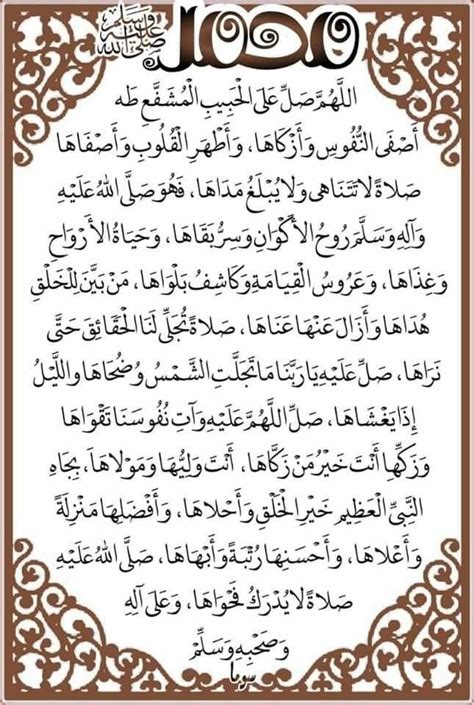 محمد صلى الله عليه وسلم
اللَّهُمَّ صَلِّ عَلَى الحَبِيبِ المُشَفَّعِ طه
أَصْفَى النُّفُوسِ وَأَزْكَاهَا، وَأَطْهَرِ القُلُوبِ وَأَصْفَاهَا
صَلَاةً لَا تَتَنَاهَى وَلَا يُبْلَغُ مَدَاهَا، فَهُوَ صَلَّى اللهُ عَلَيْهِ
وَآلِهِ وَسَلَّمَ رُوحُ الأَكْوَانِ وَسِرُّ بَقَاهَا، وَحَيَاةُ الأَرْوَاحِ
وَغِذَاهَا، وَعَرُوسُ القِيَامَةِ وَكَاشِفُ بَلْوَاهَا، مَنْ بَيَّنَ لِلْخَلْقِ
هُدَاهَا وَأَزَالَ عَنْهَا عَنَاهَا، صَلَاةً تُجَلِّي لَنَا الحَقَائِقَ حَتَّى
نَرَاهَا، صَلِّ عَلَيْهِ يَا رَبَّنَا مَا تَجَلَّتِ الشَّمْسُ وَضُحَاهَا وَاللَّيْلُ
إِذَا يَغْشَاهَا، صَلِّ اللَّهُمَّ عَلَيْهِ وَآتِ نُفُوسَنَا تَقْوَاهَا
وَزَكِّهَا أَنْتَ خَيْرُ مَنْ زَكَّاهَا، أَنْتَ وَلِيُّهَا وَمَوْلَاهَا، بِجَاهِ
النَّبِيِّ العَظِيمِ خَيْرِ الخَلْقِ وَأَحْلَاهَا، وَأَفْضَلِهَا مَنْزِلَةً
وَأَعْلَاهَا، وَأَحْسَنِهَا رُتْبَةً وَأَبْهَاهَا، صَلَّى اللهُ عَلَيْهِ
صَلَاةً لَا يُدْرَكُ فَحْوَاهَا، وَعَلَى آلِهِ
وَصَحْبِهِ وَسَلِّمْ